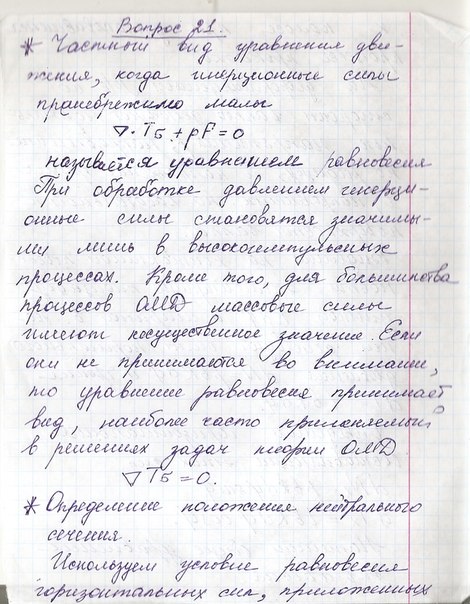 Вопрос 21.
* Частный вид уравнения дви-
жения, когда инерционные силы
пранебрежимо малы
∇·Tσ + ρF = 0
называется уравнением равновесия
При обработке давлением инерци-
онные силы становятся значимы-
ми лишь в высокоимпульсных
процессах. Кроме того, для большинства
процессов ОМД массовые силы
имеют несущественное значение. Если
они не принимаются во внимание,
то уравнение равновесия принимает
вид, наиболее часто применяемый
в решениях задач теории ОМД.
∇Tσ = 0.
* Определение положения нейтрального
сечения.
Используем условие равновесия
горизонтальных сил, приложенных